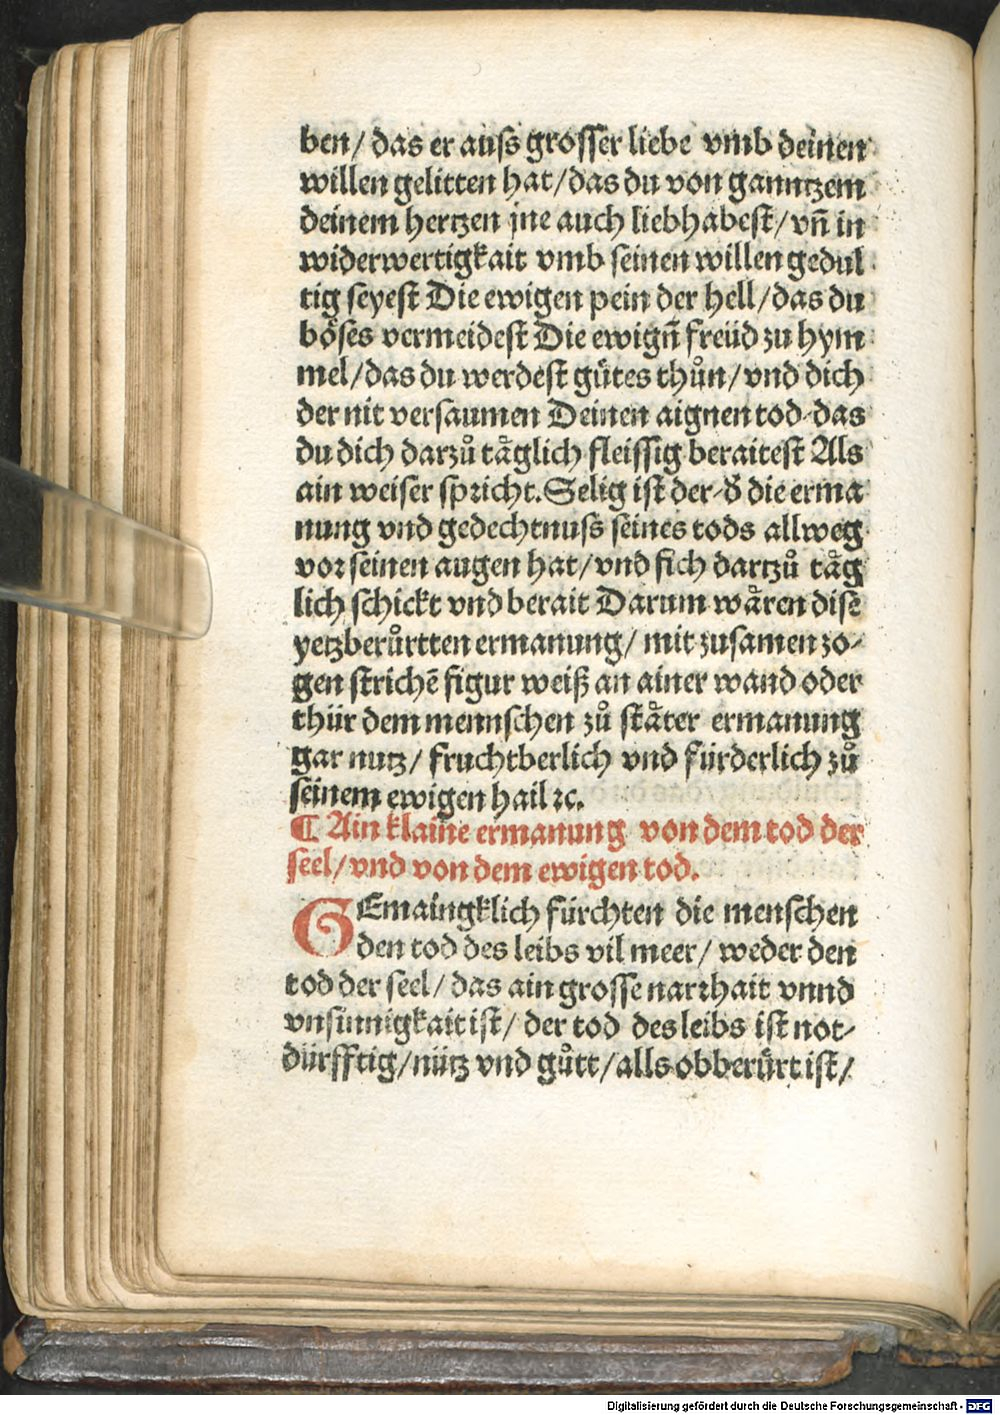 ben/ das er auſs groſſer liebe vmb deinen
willen gelitten hat/das du von ganntzem
deinem hertzen jne auch liebhabeſt/vn̄ in
widerwertigkait vmb ſeinen willen gedul
tig ſeyeſt Die ewigen pein der hell/das du
böſes vermeideſt Die ewign̄ freüd zu hym
mel/das du werdeſt gütes thůn/vnd dich
der nit verſaumen Deinen aignen tod das
du dich darzů tåglich fleiſſig beraiteſt Als
ain weiſer ſpꝛicht. Selig iſt der/ð die erma
nung vnd gedechtnuſs ſeines tods allweg
voꝛ ſeinen augen hat/vnd ſich dartzů tåg
lich ſchickt vnd berait Darum wåren diſe
yetzberůrtten ermanung/ mit zuſamen zo⸗
gen ſtrichē figur weiß an ainer wand oder
thür dem mennſchen zů ſtåter ermanung
gar nutz/ fruchtberlich vnd fürderlich zů
ſeinem ewigen hail ꝛc.
¶ Ain klaine ermanung von dem tod der
ſeel/vnd von dem ewigen tod.
GEmaingklich fürchten die menſchen
den tod des leibs vil meer/ weder den
tod der ſeel/ das ain groſſe narꝛhait vnnd
vnſinnigkait iſt/ der tod des leibs iſt not⸗
dürfftig/nütz vnd gůtt/alls obberürt iſt/
Digitalisierung gefördert durch die Deutsche Forschungsgemeinschaft - DFG